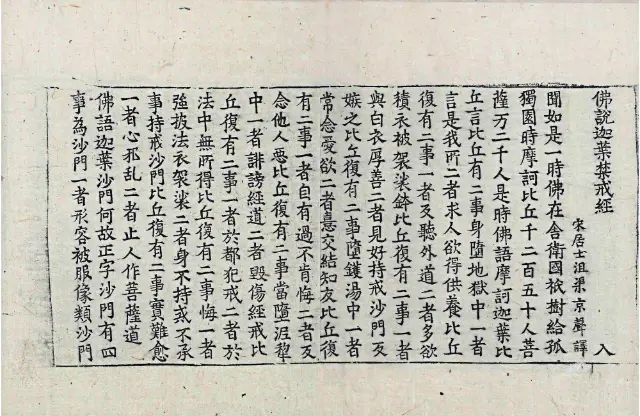 佛說迦葉禁戒經　入
宋居士沮渠京聲譯
聞如是一時佛在舍衛國祇樹給孤
獨園時摩訶比丘千二百五十人菩
薩万二千人是時佛語摩訶迦葉比
丘言比丘有二事身墮地獄中一者
言是我所二者求人欲得供養比丘
復有二事一者反聽外道二者多欲
積衣被袈裟鉢比丘復有二事一者
與白衣厚善二者見好持戒沙門反
嫉之比丘復有二事墮鑊湯中一者
常念愛欲二者憙交結知友比丘復
有二事一者自有過不肯悔二者反
念他人惡比丘復有二事當墮泥犁
中一者誹謗經道二者毀傷經戒比
丘復有二事一者於都犯戒二者於
法中無所得比丘復有二事悔一者
強披法衣袈裟二者身不持戒不承
事持戒沙門比丘復有二事實難愈
一者心邪亂二者止人作菩薩道
佛語迦葉沙門何故正字沙門有四
事為沙門一者形容被服像類沙門